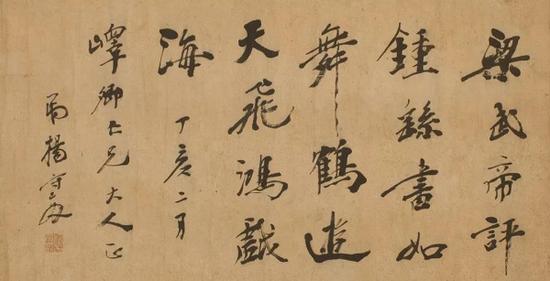 梁武帝評
鍾繇書如
舞鶴遊
天飛鴻戲
海 丁亥二月
嶧卿仁兄大人正
弟楊守敬